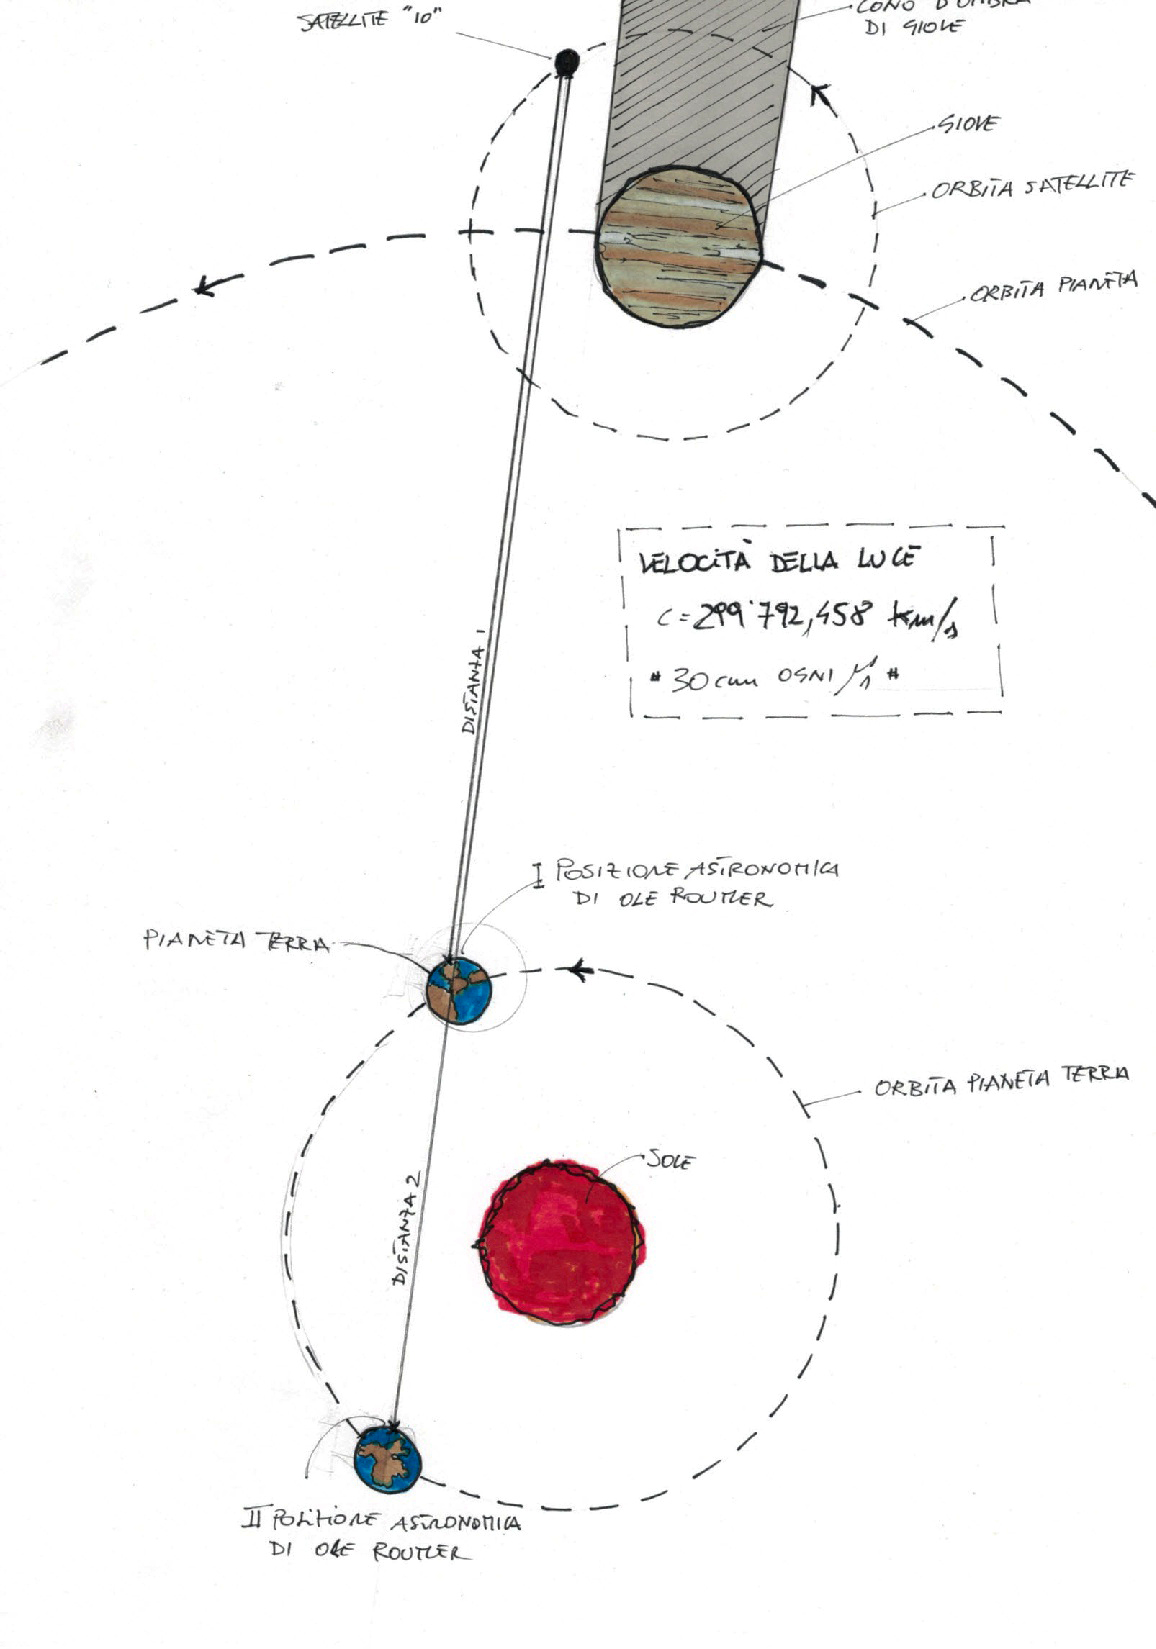 SATELLITE "IO"
CONO D'OMBRA
DI GIOVE
GIOVE
ORBITA SATELLITE
ORBITA PIANETA
VELOCITÀ DELLA LUCE
C = 299'792,458 km/s
"30 cm OGNI
DISTANZA 1
I POSIZIONE ASTRONOMICA
DI OLE ROUTLER
PIANETA TERRA
ORBITA PIANETA TERRA
SOLE
DISTANZA 2
II POSIZIONE ASTRONOMICA
DI OLE ROUTLER